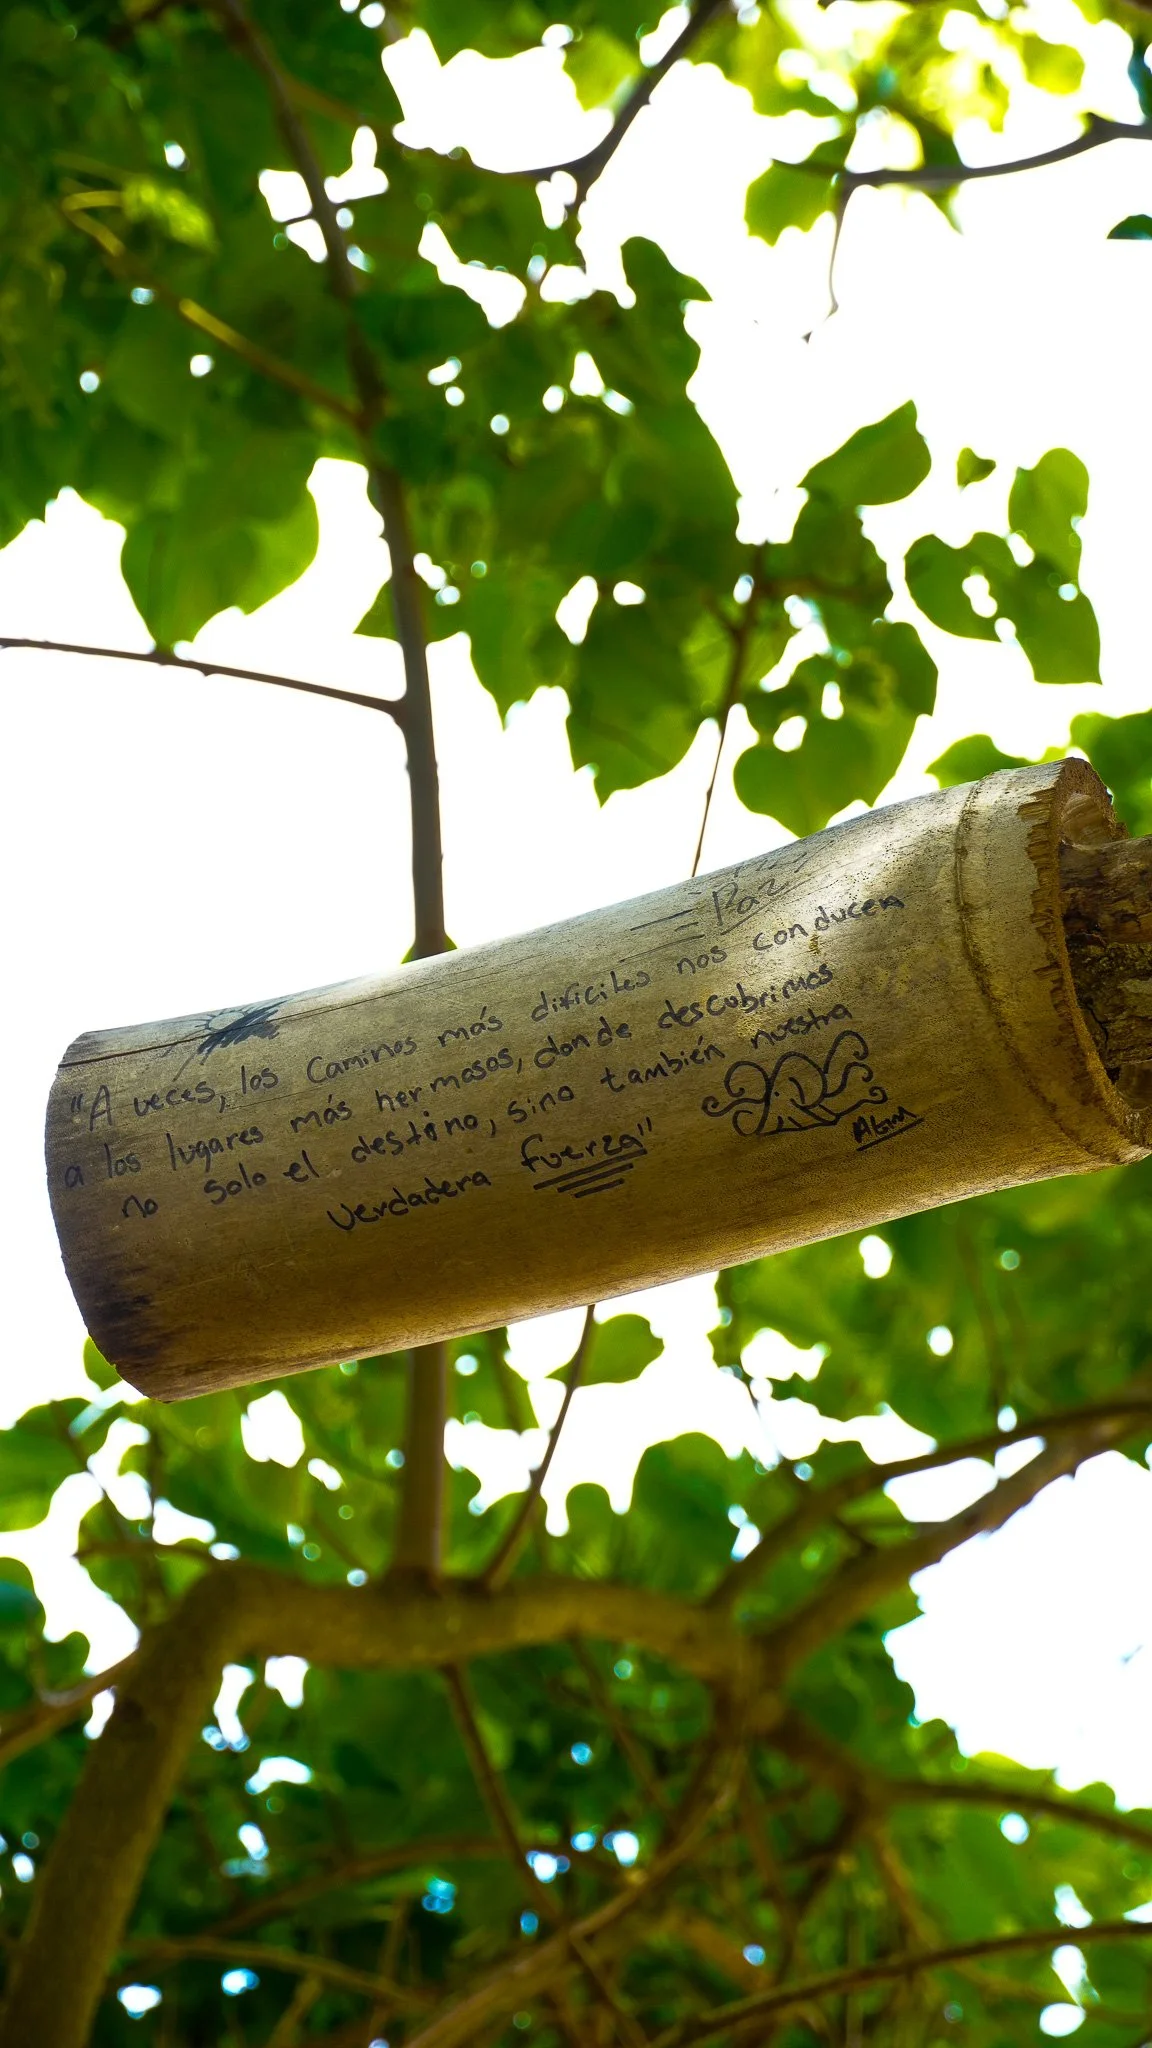 Paz
"A veces, los caminos más difíciles nos conducen
a los lugares más hermosos, donde descubrimos
no solo el destino, sino también nuestra
verdadera fuerza"